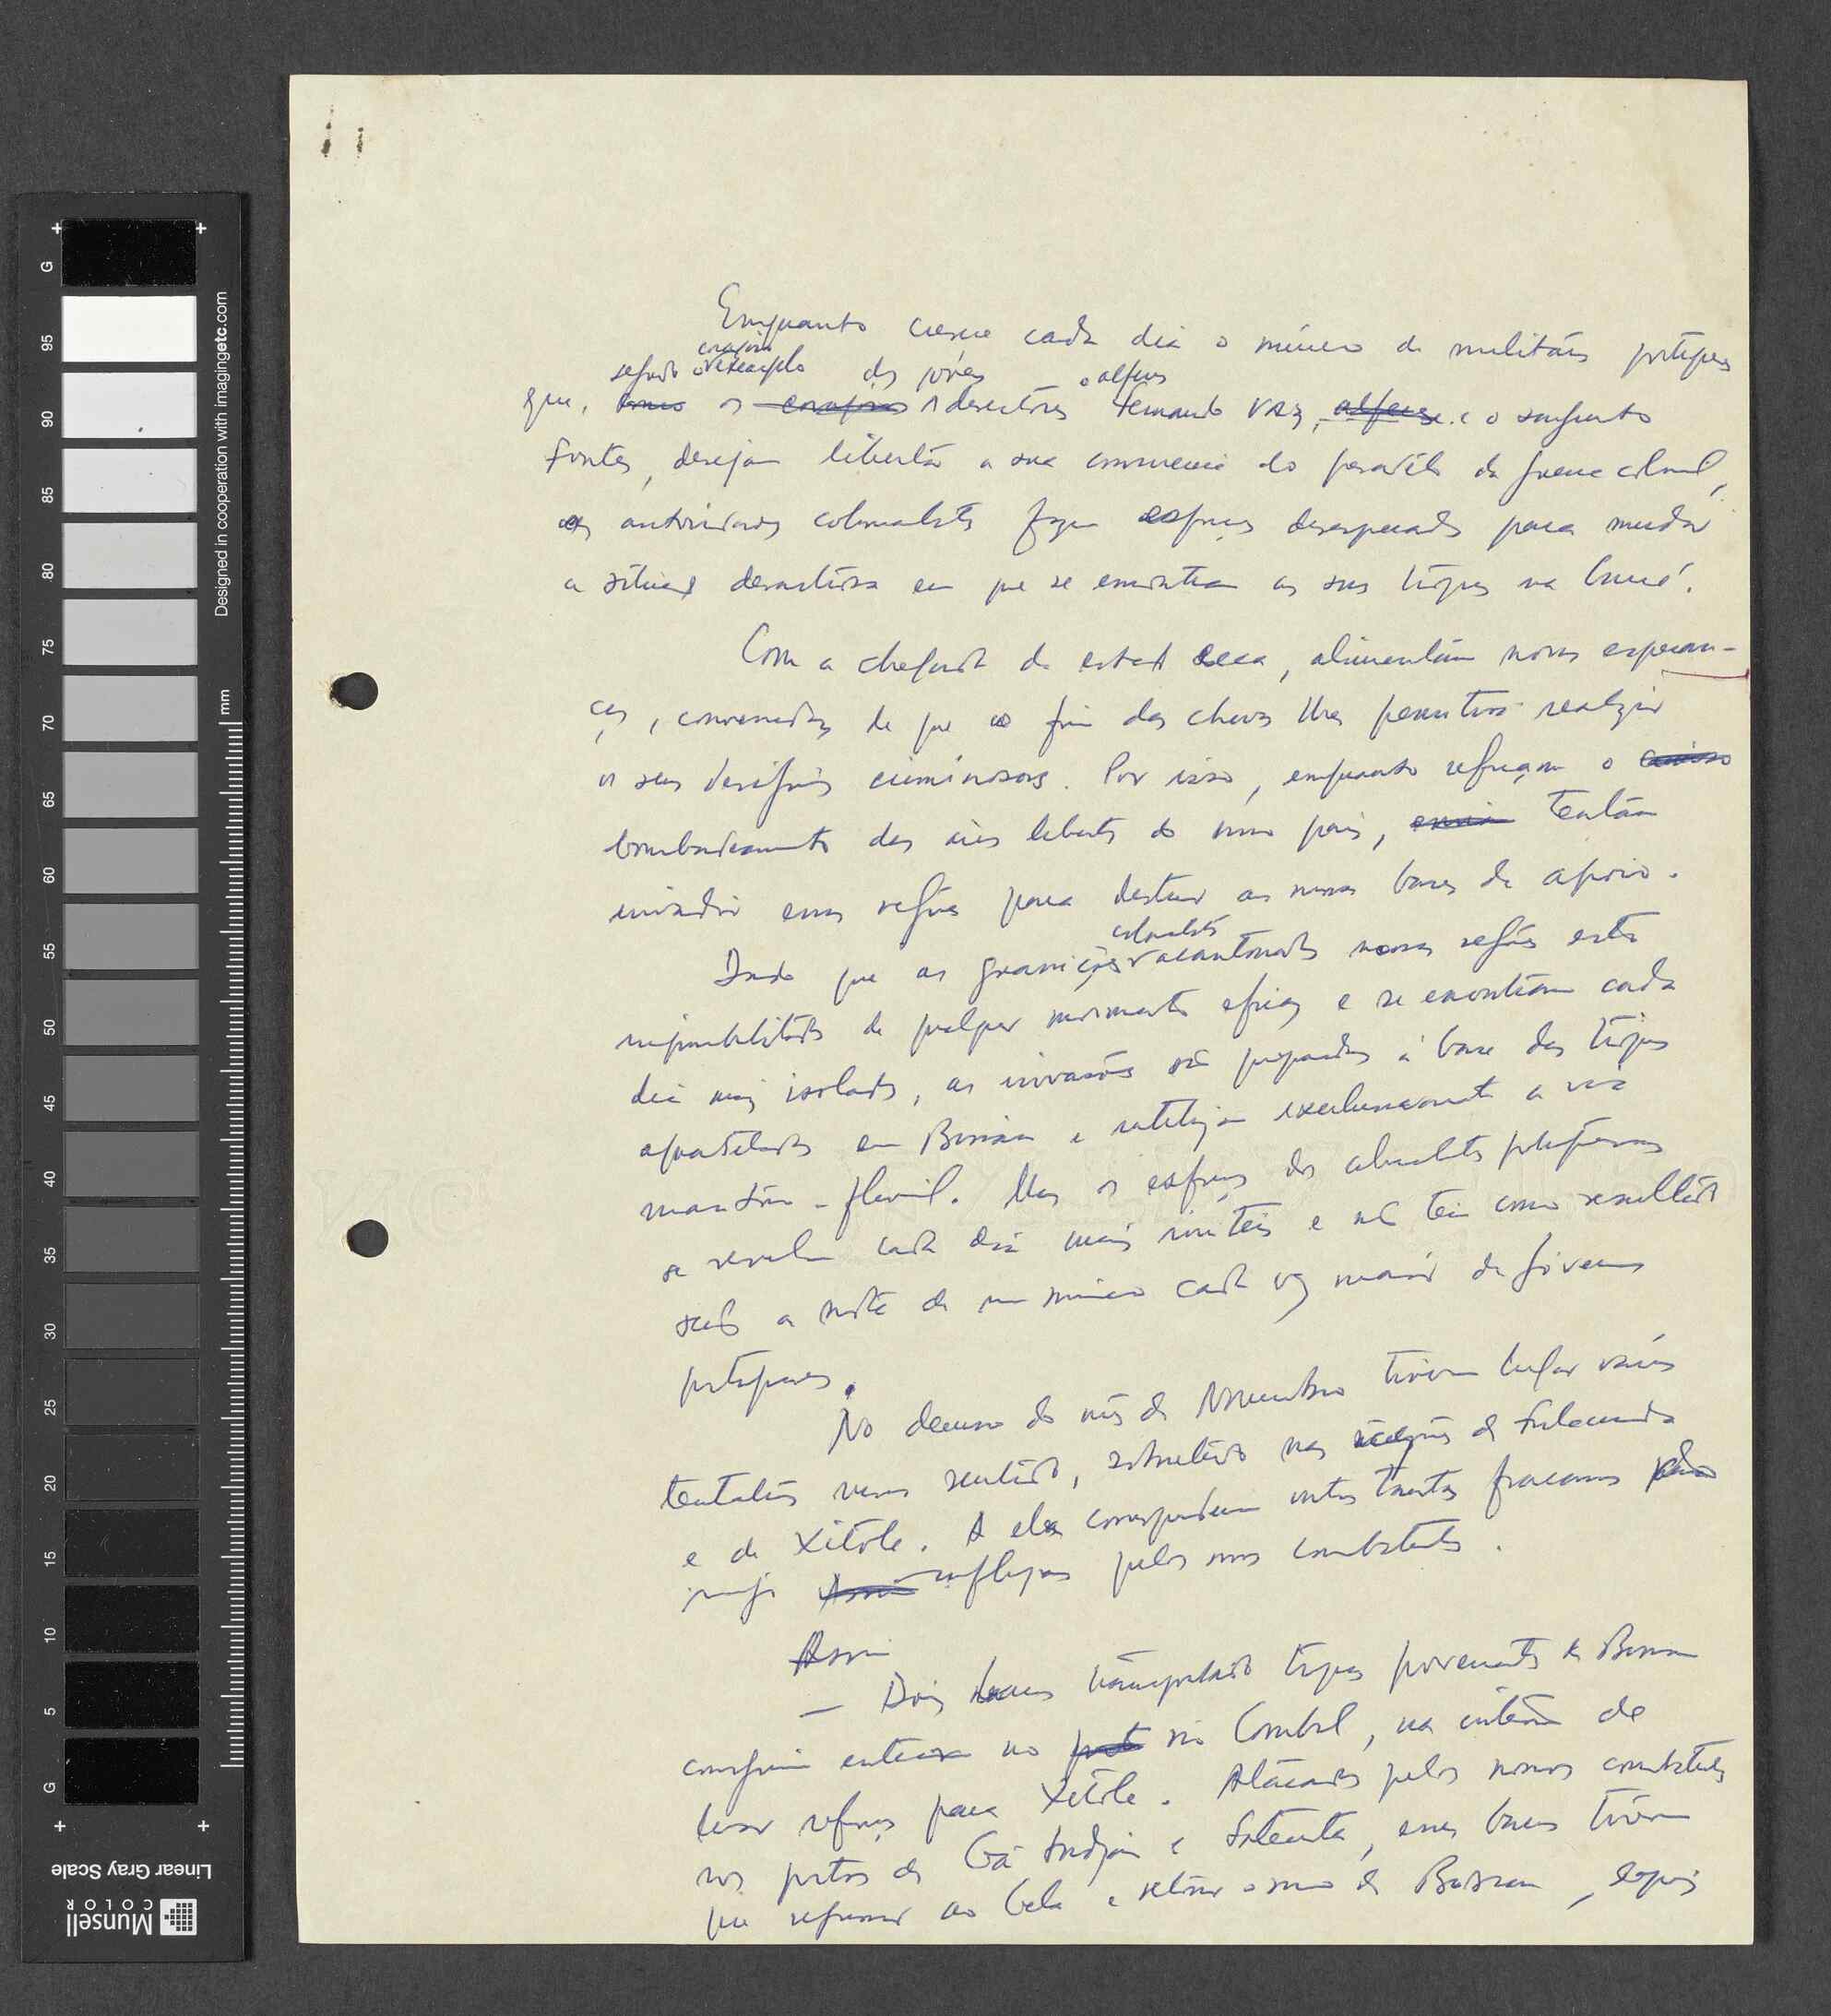 Enquanto cresce cada dia o número de militares portugueses
corajoso
seguindo o exemplo dos jovens o alferes
que, como os corajosos desertores Fernando Vaz, alferes e o sargento
Fontes, desejam libertar a sua consciência do pesadelo da guerra colonial,
as autoridades colonialistas fazem esforços desesperados para mudar
a situação desastrosa em que se encontram as suas tropas na Guiné.
Com a chegada da estação seca, alimentam novas esperan-
ças, convencidas de que o fim das chuvas lhes permitirá realizar
os seus desígnios criminosos. Por isso, enquanto reforçam o
bombardeamento das áreas libertadas do nosso país, tentam
invadir essas regiões para destruir as nossas bases de apoio.
colonialistas
Dado que as guarnições acantonadas nessas regiões estão
impossibilitadas de qualquer movimento eficaz e se encontram cada
dia mais isoladas, as invasões são preparadas à base das tropas
aquarteladas em Bissau e utilizam exclusivamente a via
marítimo-fluvial. Mas os esforços dos colonialistas portugueses
se revelam cada dia mais inúteis e não têm como resultado
senão a morte de um número cada vez maior de jovens
portugueses.
No decurso do mês de Novembro tiveram lugar várias
tentativas nesse sentido, sobretudo nas regiões de Fulacunda
e de Xitole. A elas correspondem outros tantos fracassos
infligidos pelos nossos combatentes.
Assim
— Dois barcos transportando tropas provenientes de Bissau
conseguiram entrar no rio Corubal, na intenção de
levar reforços para Xitole. Atacados pelos nossos combatentes
nos portos de Gã e , esses barcos tiveram
que regressar ao Geba e retomar o rumo de Bissau, depois